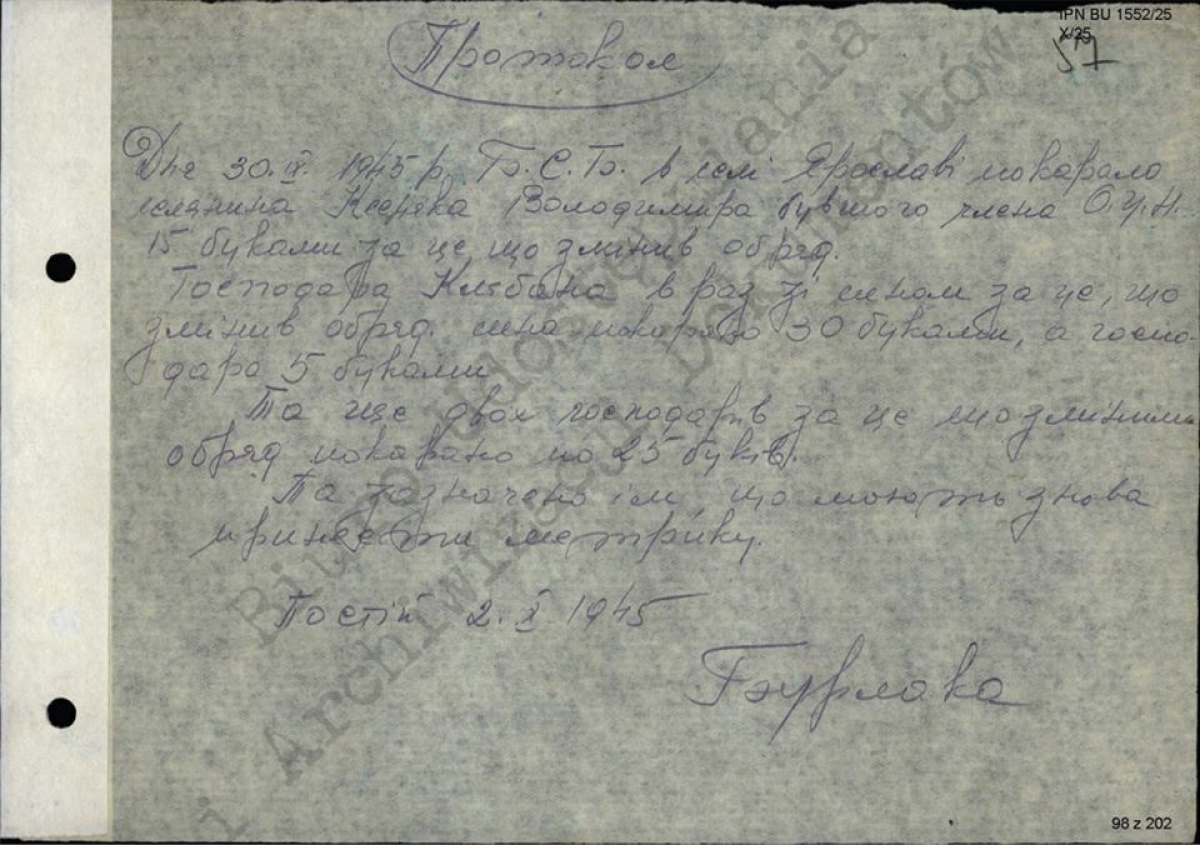 IPN BU 1552/25
X/25
57
Протокол
Дня 30.ІХ. 1945 р. Б.С.Б. в селі Ярославі покарало
селянина Володимира бувшого члена О.У.Н.
15 буками за це, що змінив обряд.
Господара Клюбана враз зі сином за це, що
змінив обряд. сина покарано 30 буками, а госпо-
дара 5 буками
Та ще двох господарів за це що змінили
обряд покарано по 25 буків.
Та зазначено їм що мають знова
принести метрику.
Постій 2. Х. 1945
Бурлака
Biuro Udostępniania
i Archiwizacji Dokumentów
98 z 202